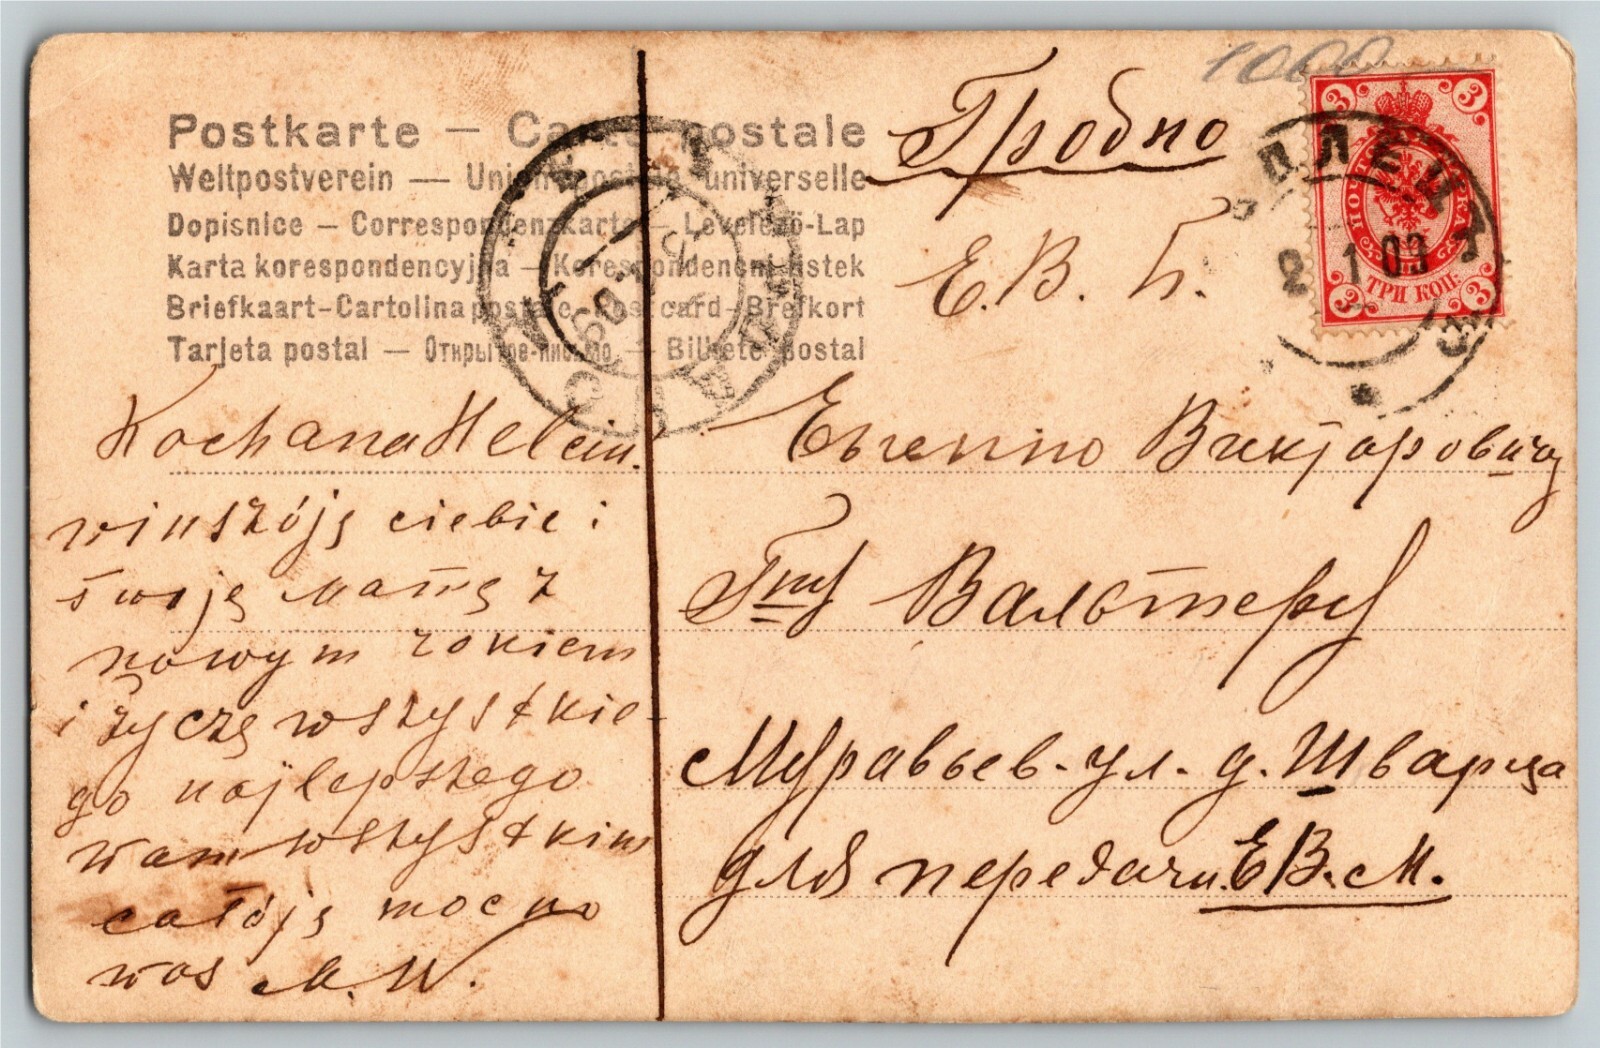 Postkarte — Carte postale
Weltpostverein — Union postale universelle
Dopisnice — Correspondenzkarte — Levelező-Lap
Karta korespondencyjna — Korespondenční lístek
Briefkaart-Cartolina postale-Post card-Brefkort
Tarjeta postal — Открытое-письмо — Bilhete postal
1000
Гродно
Е. В. Б.
3 3
ТРИ КОП.
3 3
2 1 09
Kochana Helciu.
winszóję ciebie i
twoję mamę z
nowym rokiem
i życzę wszystkie-
go najlepszego
wam wszystkim
całóję mocno
was M. W.
Евгению Викторовичу
Гну Вальтеру
Муравьев. ул. д. Шварца
для передачи. Е В. М.